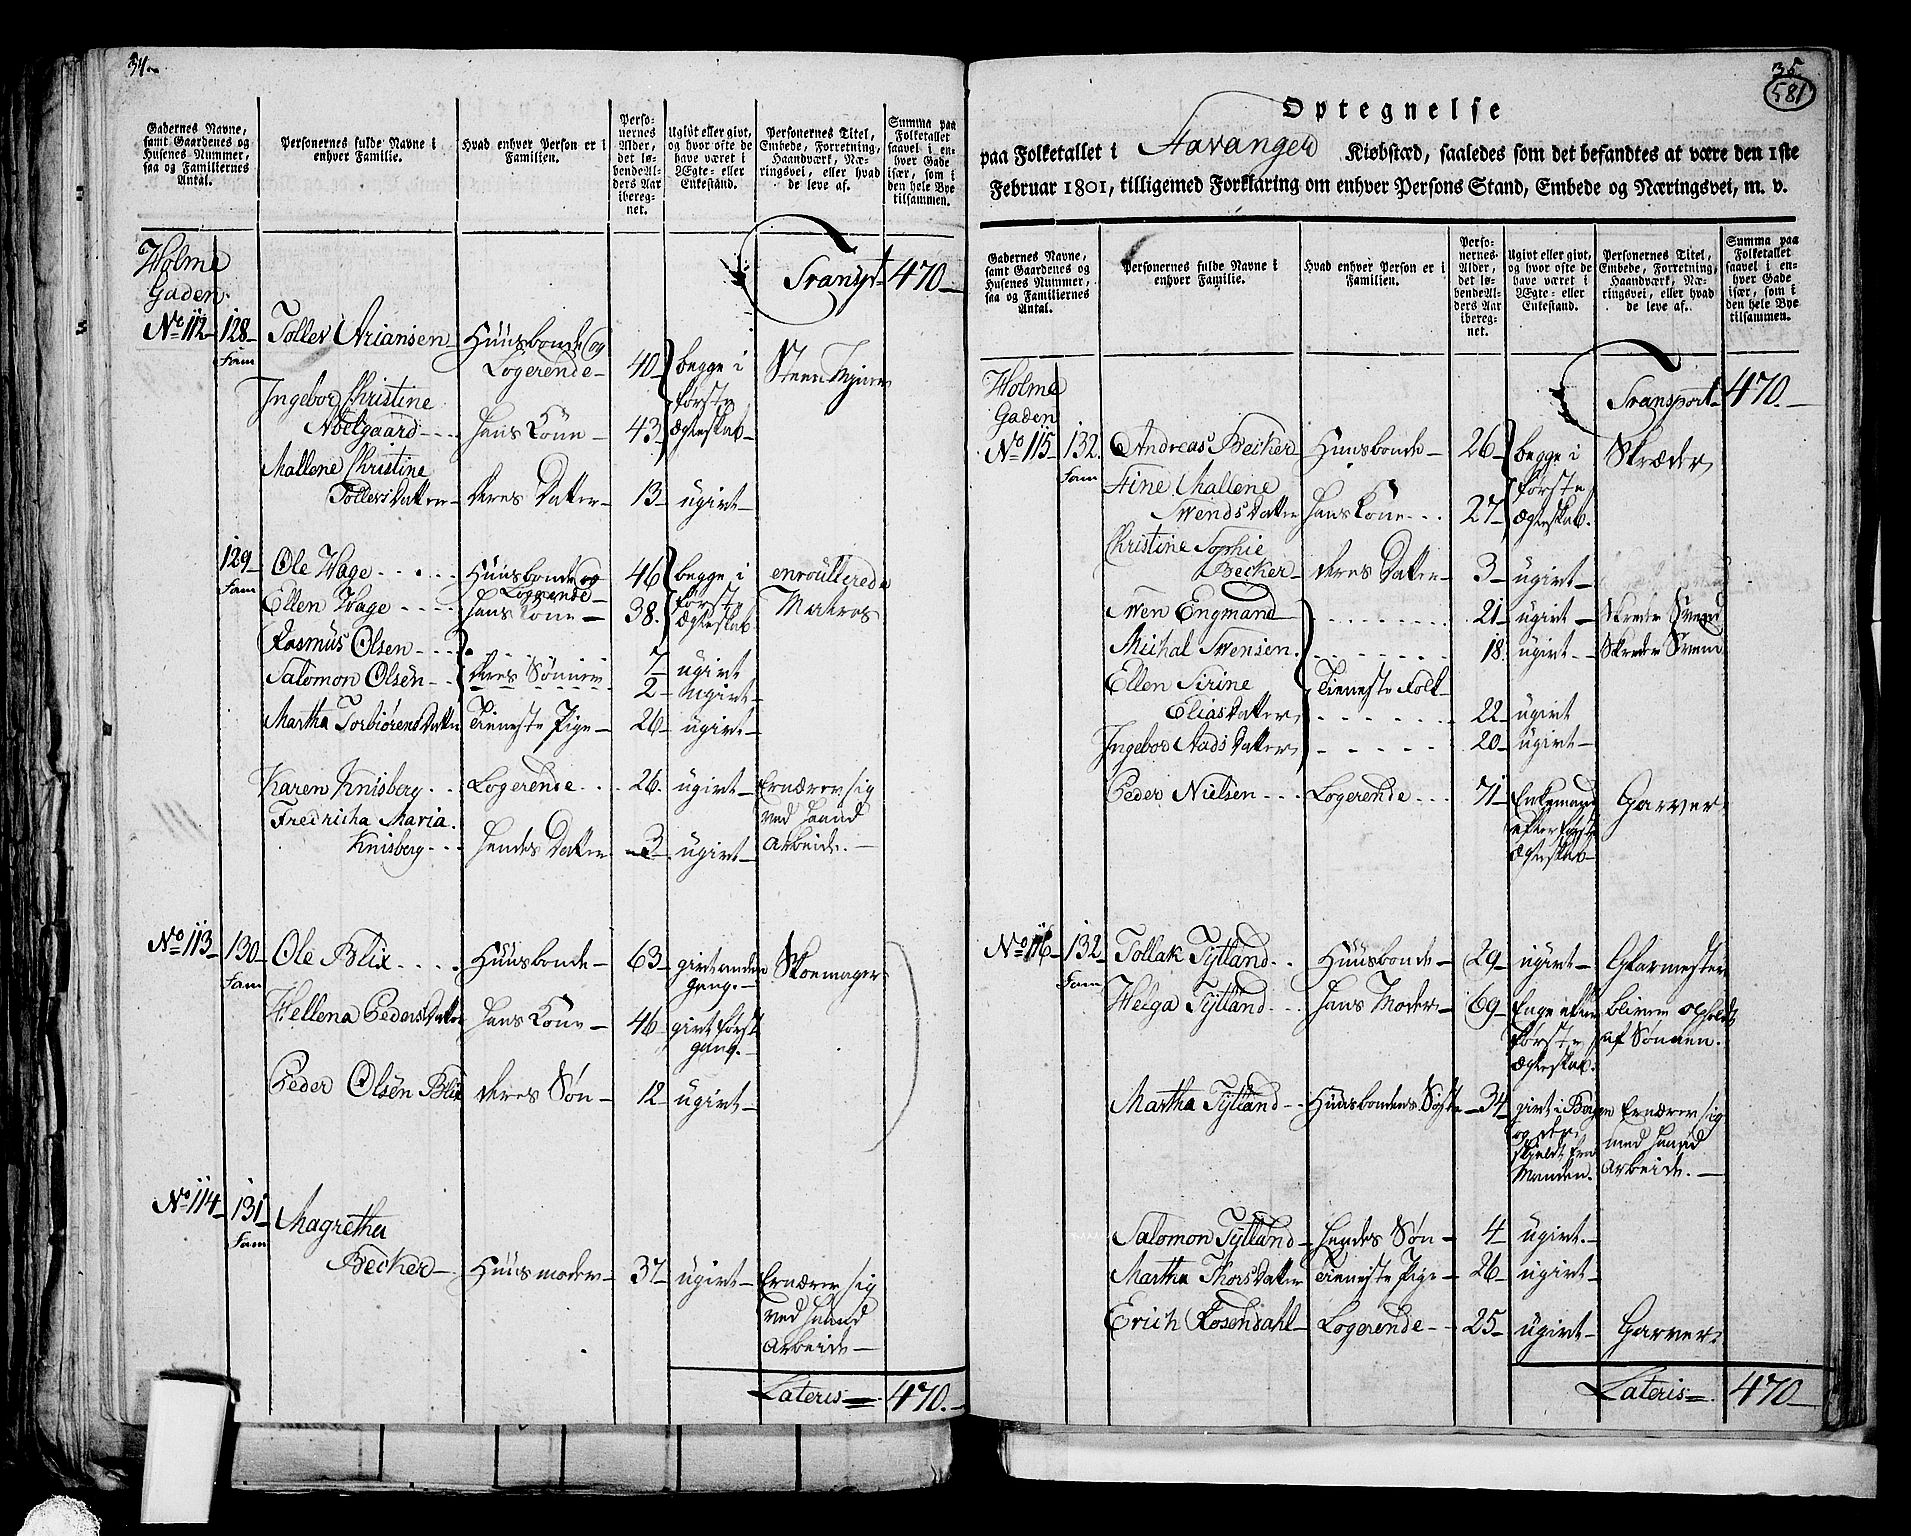 34.
Gadernes Navne, samt Gaardenes og Husenes Nummer, saa og Familiernes Antal.
Personernes fulde Navne i enhver Familie.
Hvad enhver Person er i Familien.
Personernes Alder, det løbende Alders Aar iberegnet.
Ugivt eller givt, og hvor ofte de have været i Ægte- eller Enkestand.
Personernes Titel, Embede, Forretning, Haandværk, Næringsvei, eller hvad de leve af.
Summa paa Folketallet saavel i enhver Gade især, som i den hele Bye tilsammen.
Holme Gaden
Transpt 470
No 112 128 Fam Tollev Ariansen Huusbonde og Logerende 40 begge i første Ægteskab
Ingebor Christine Noelgaard hans Kone 43
Mallene Christine Tollevsdatter deres Datter 13 ugivt
129 Fam Ole Hage Huusbonde og Logerende 46 begge i første Ægteskab enroullerede Matros
Ellen Hage hans Kone 38.
Rasmus Olsen 7 ugivt
Salomon Olsen deres Sønner 2 ugivt
Martha Torbiørensdatter Tieneste Pige 26 ugivt
Karen Knisberg Logerende 26. ugivt Ernærer sig ved haand Arbeide.
Fredricha Maria Knisberg hendes Datter 3 ugivt
No 113 130 Fam Ole Blix Huusbonde 63 givt anden gang. Skoemager
Hellena Pedersdatter hans Kone 46 givt først gang.
Peder Olsen Blix deres Søn 12 ugivt
No 114 131 Fam Magretha Becker Huusmoder 37 ugivt Ernærer sig ved haand Arbeide
Lateris 470.
35.
581
Optegnelse
paa Folketallet i Stavanger Kiøbstæd, saaledes som det befandtes at være den 1ste
Februar 1801, tilligemed Forklaring om enhver Persons Stand, Embede og Næringsvei, m. v.
Gadernes Navne, samt Gaardenes og Husenes Nummer, saa og Familiernes Antal.
Personernes fulde Navne i enhver Familie.
Hvad enhver Person er i Familien.
Personernes Alder, det løbende Alders Aar iberegnet.
Ugivt eller givt, og hvor ofte de have været i Ægte- eller Enkestand.
Personernes Titel, Embede, Forretning, Haandværk, Næringsvei, eller hvad de leve af.
Summa paa Folketallet saavel i enhver Gade især, som i den hele Bye tilsammen.
Holme Gaden
Transport 470.
No 115 132. Fam Andreas Becker Huusbonde 26 begge i første Ægteskab. Skræder
Stine Mallene Swendsdatter hans Kone 27
Christine Sophie Becker deres Datter 3 ugivt
Swen Engmand 21 ugivt Skreder Svend
Michal Swensen. 18 ugivt Skreder Svend
Ellen Sirine Eliasdatter Tieneste Folk 22 ugivt
Ingebor Aadsdatter 20 ugivt
Peder Nielsen Logerende 71 Enkemand efter første Ægteskab Garver
No 116 132 Fam Tollak Tytland Huusbonde 29 ugivt Glarmester
Helga Tytland hans Moder 69 Enge efter første Ægteskab. bliver opholdt af Sønnen.
Martha Tytland Huusbondens Søster 34 givt i Bergen og der skieldt fra Manden. Ernærer sig med haand Arbeide.
Salomon Tytland hendes Søn 4 ugivt.
Martha Thorsdatter Tieneste Pige 26 ugivt
Erich Rosendahl Logerende 25 ugivt Garver
Lateris 470